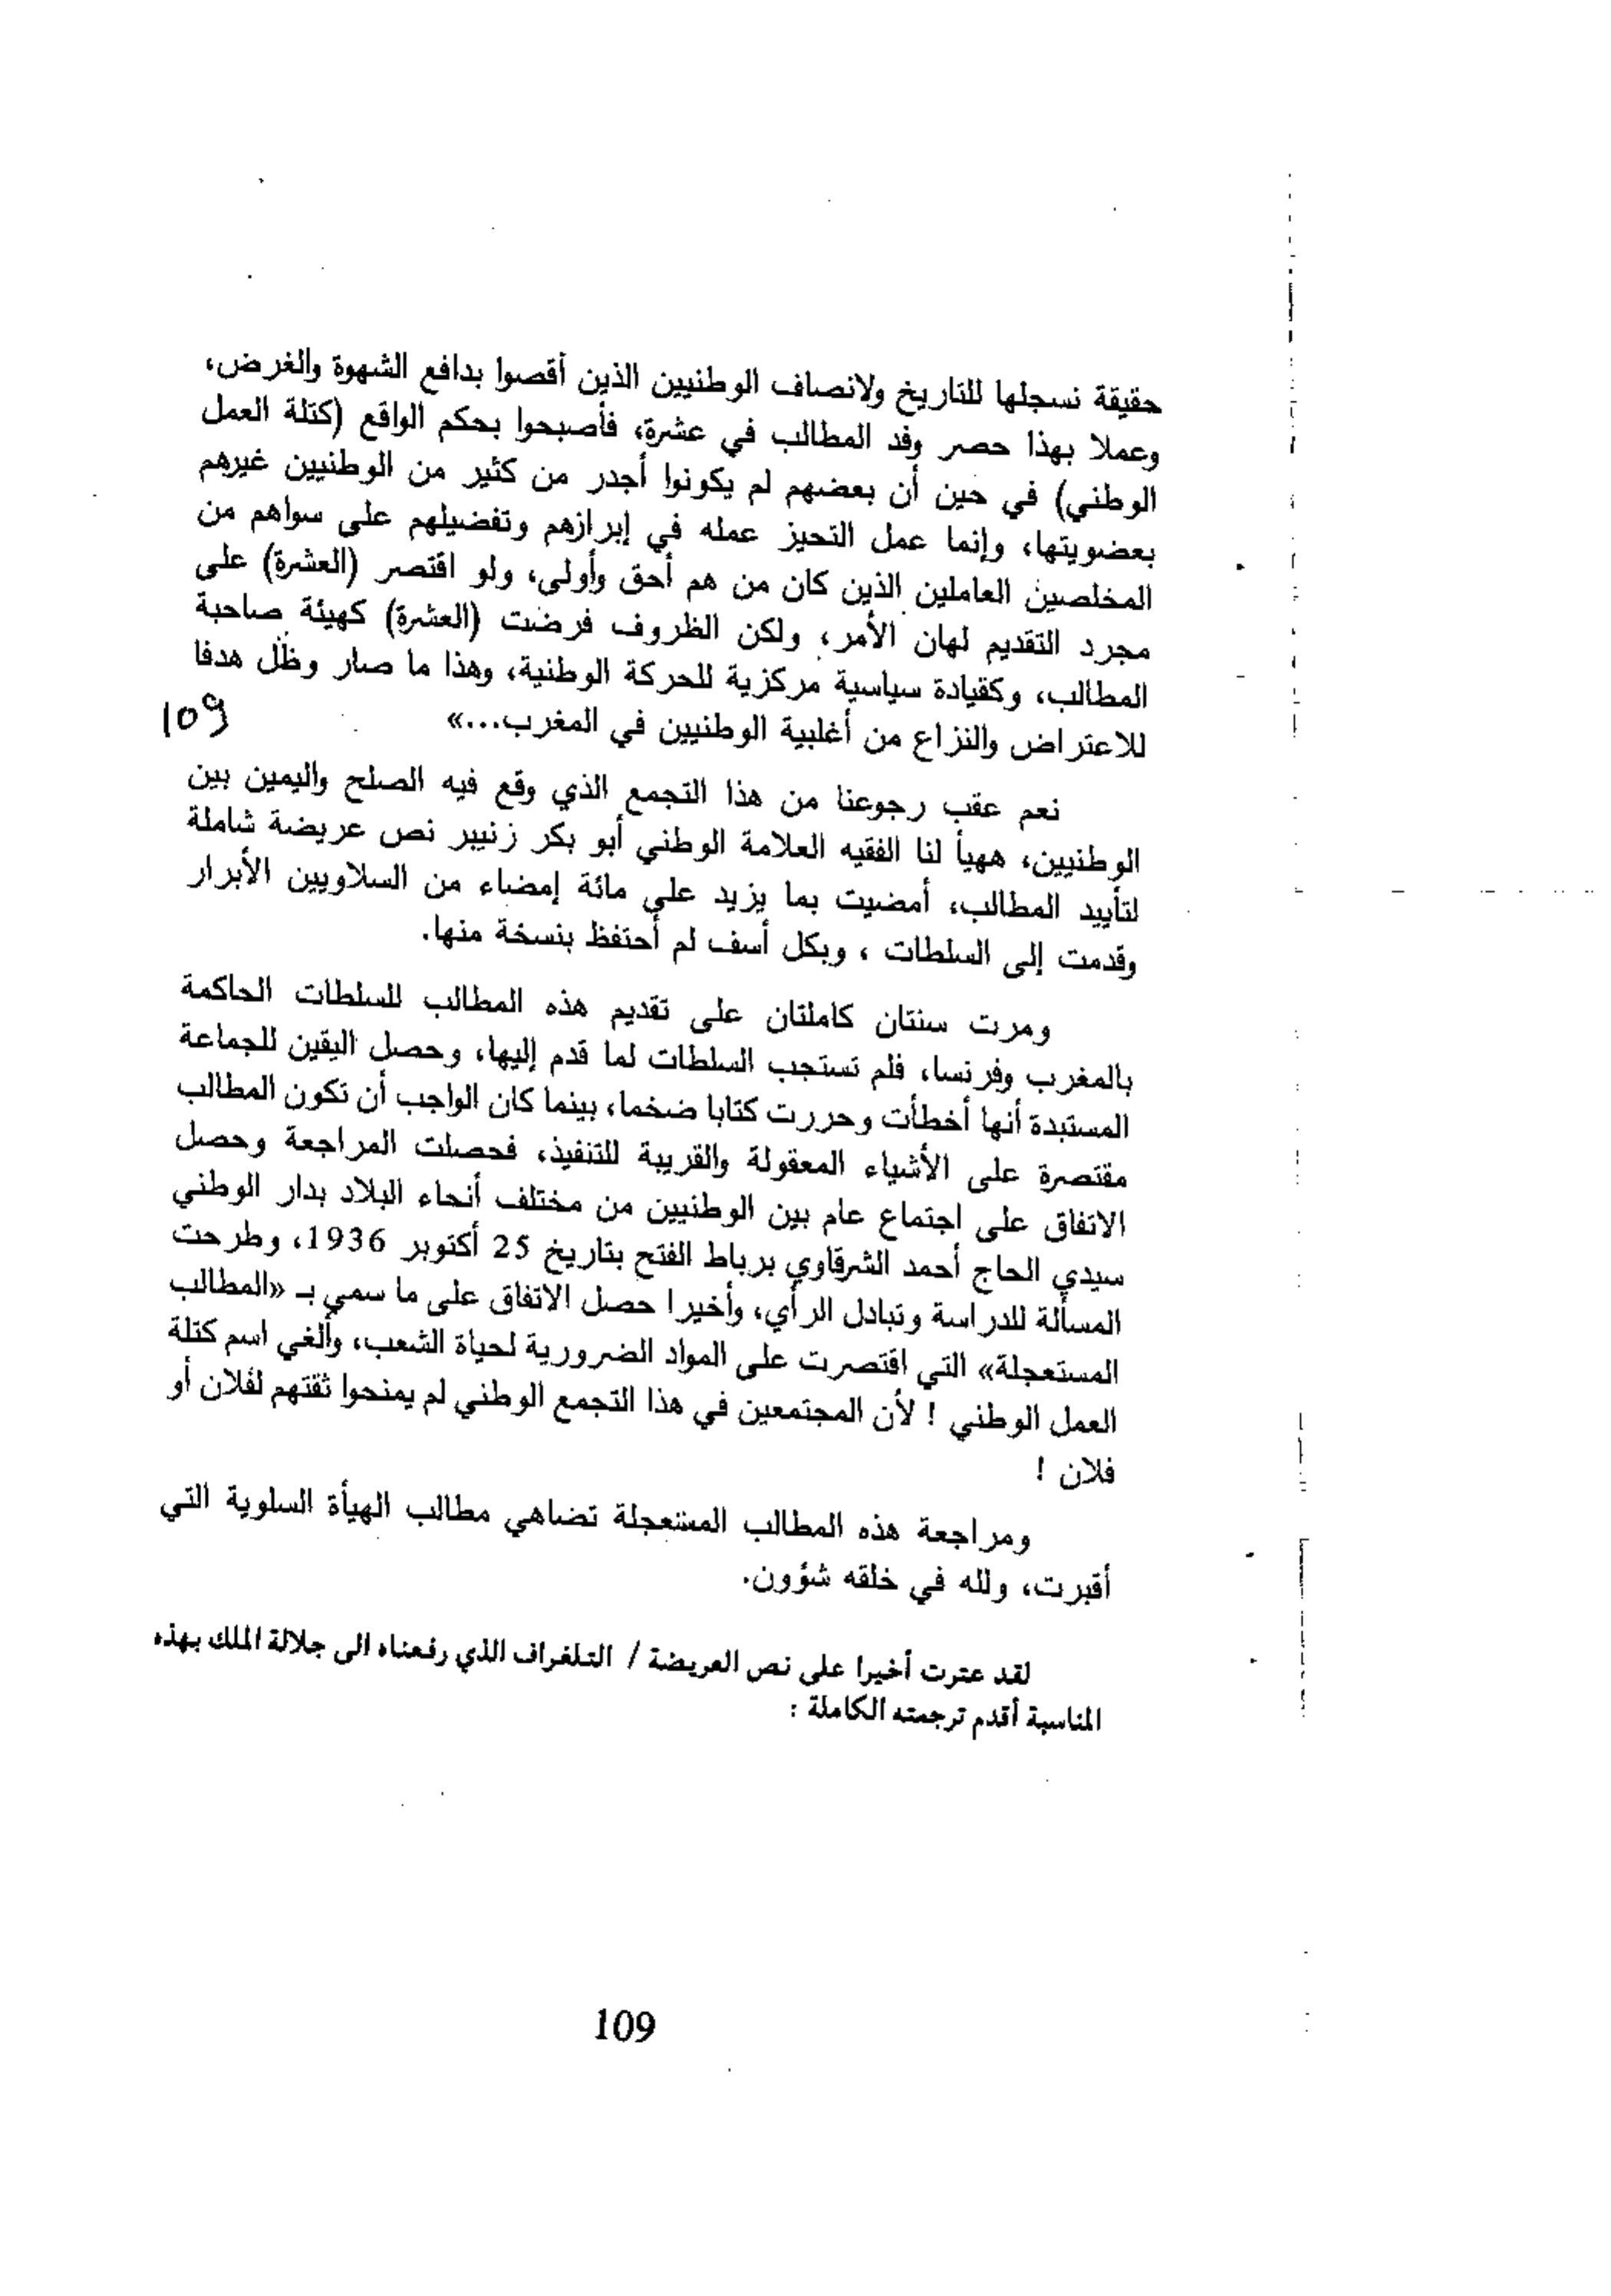 حقيقة نسجلها للتاريخ ولانصاف الوطنيين الذين أقصوا بدافع الشهوة والغرض،
وعملا بهذا حصر وفد المطالب في عشرة، فأصبحوا بحكم الواقع (كتلة العمل
الوطني) في حين أن بعضهم لم يكونوا أجدر من كثير من الوطنيين غيرهم
بعضويتها، وإنما عمل التحيز عمله في إبرازهم وتفضيلهم على سواهم من
المخلصين العاملين الذين كان من هم أحق وأولى، ولو اقتصر (العشرة) على
مجرد التقديم لهان الأمر، ولكن الظروف فرضت (العشرة) كهيئة صاحبة
المطالب، وكقيادة سياسية مركزية للحركة الوطنية، وهذا ما صار وظل هدفا
للاعتراض والنزاع من أغلبية الوطنيين في المغرب...»
109
نعم عقب رجوعنا من هذا التجمع الذي وقع فيه الصلح واليمين بين
الوطنيين، ههيأ لنا الفقيه العلامة الوطني أبو بكر زنيبر نص عريضة شاملة
لتأييد المطالب، أمضيت بما يزيد على مائة إمضاء من السلاويين الأبرار
وقدمت إلى السلطات ، وبكل أسف لم أحتفظ بنسخة منها.
ومرت سنتان كاملتان على تقديم هذه المطالب للسلطات الحاكمة
بالمغرب وفرنسا، فلم تستجب السلطات لما قدم إليها، وحصل اليقين للجماعة
المستبدة أنها أخطأت وحررت كتابا ضخما، بينما كان الواجب أن تكون المطالب
مقتصرة على الأشياء المعقولة والقريبة للتنفيذ، فحصلت المراجعة وحصل
الاتفاق على اجتماع عام بين الوطنيين من مختلف أنحاء البلاد بدار الوطني
سيدي الحاج أحمد الشرقاوي برباط الفتح بتاريخ 25 أكتوبر 1936، وطرحت
المسألة للدراسة وتبادل الرأي، وأخيرا حصل الاتفاق على ما سمي بـ «المطالب
المستعجلة» التي اقتصرت على المواد الضرورية لحياة الشعب، وألغي اسم كتلة
العمل الوطني ! لأن المجتمعين في هذا التجمع الوطني لم يمنحوا ثقتهم لفلان أو
فلان !
ومراجعة هذه المطالب المستعجلة تضاهي مطالب الهيأة السلوية التي
أقبرت، ولله في خلقه شؤون.
لقد عترت أخيرا على نص العريضة / التلغراف الذي رفعناه الى جلالة الملك بهذه
المناسبة أقدم ترجمته الكاملة :
109